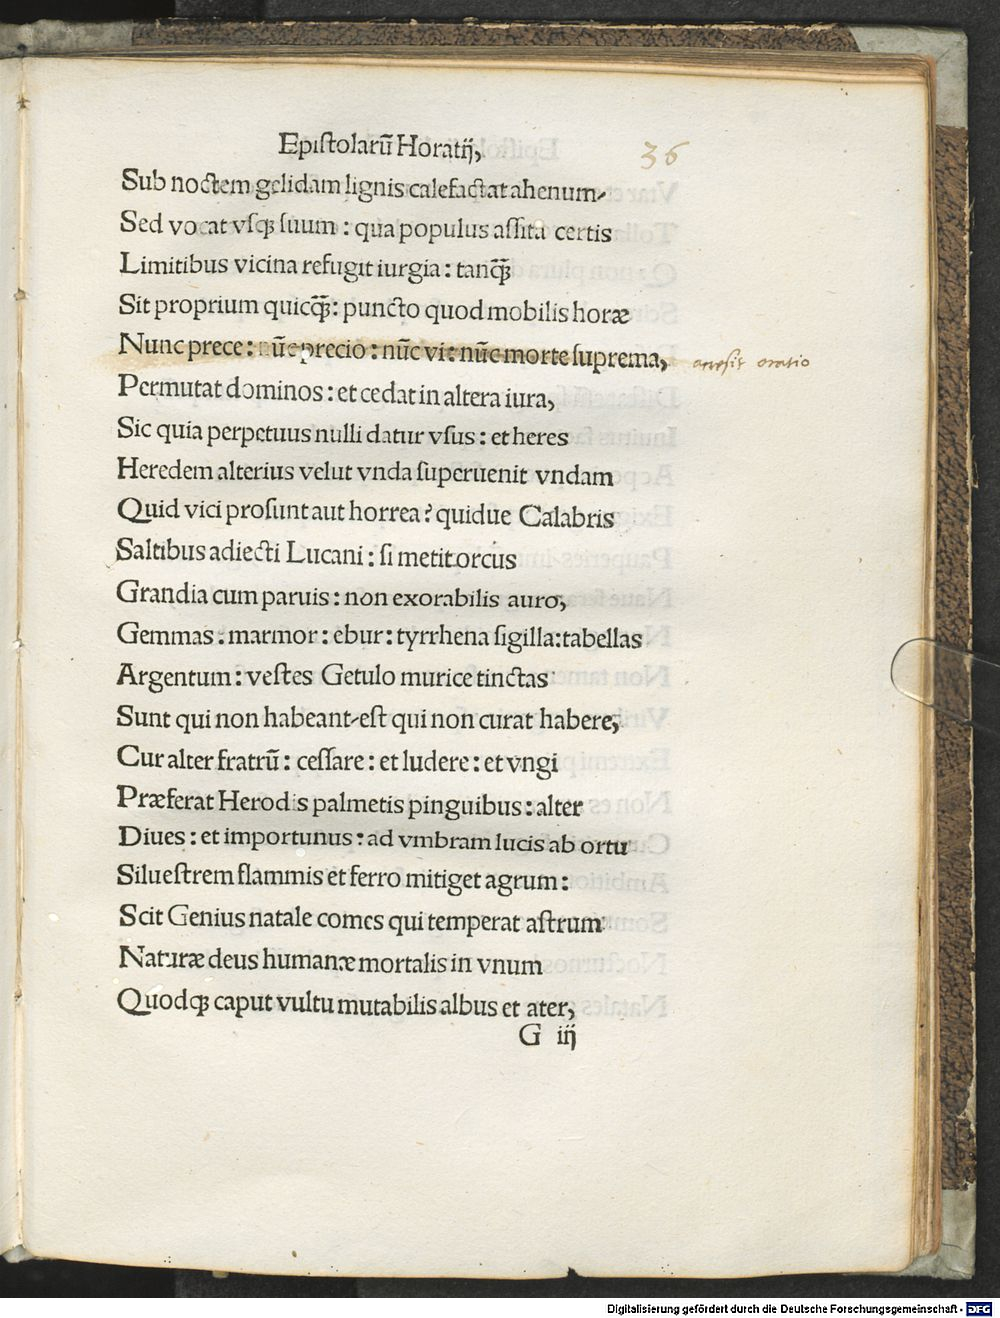 Epistolarū Horatij,
36
Sub noctem gelidam lignis calefactat ahenum,
Sed vocat vsqꝫ suum : qua populus assita certis
Limitibus vicina refugit iurgia : tanqꝫ̃
Sit proprium quicqꝫ̃ : puncto quod mobilis horæ
Nunc prece : nūc precio : nūc vi : nūc morte suprema,
oratio
Permutat dominos : et cedat in altera iura,
Sic quia perpetuus nulli datur vsus : et heres
Heredem alterius velut vnda superuenit vndam
Quid vici prosunt aut horrea ? quidue Calabris
Saltibus adiecti Lucani : si metit orcus
Grandia cum paruis : non exorabilis auro,
Gemmas : marmor : ebur : tyrrhena sigilla : tabellas
Argentum : vestes Getulo murice tinctas
Sunt qui non habeant, est qui non curat habere,
Cur alter fratrū : cessare : et ludere : et vngi
Præferat Herodis palmetis pinguibus : alter
Diues : et importunus : ad vmbram lucis ab ortu
Siluestrem flammis et ferro mitiget agrum :
Scit Genius natale comes qui temperat astrum
Naturæ deus humanæ mortalis in vnum
Quodqꝫ caput vultu mutabilis albus et ater,
G iij
Digitalisierung gefördert durch die Deutsche Forschungsgemeinschaft - DFG